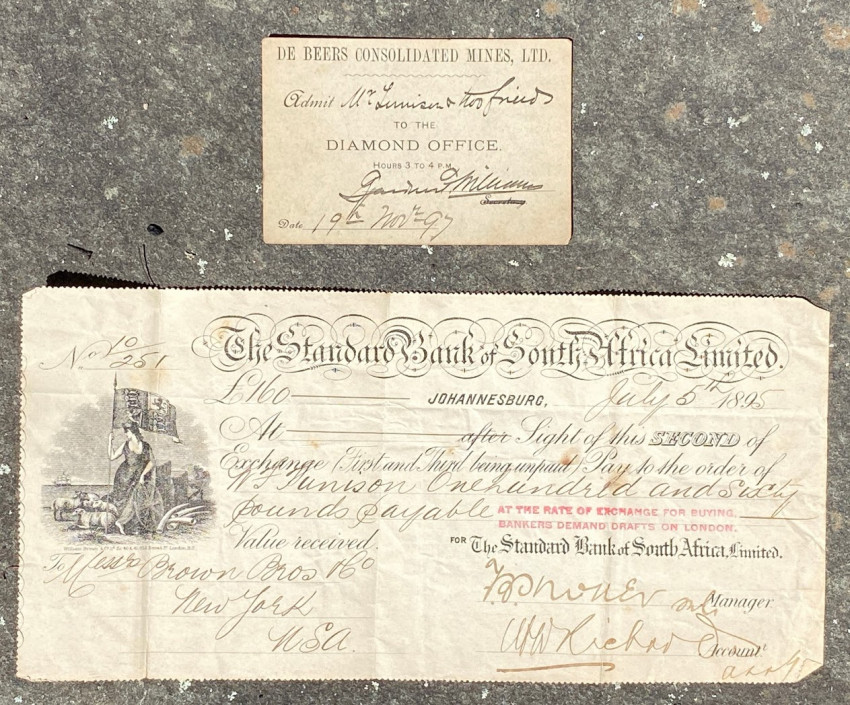 DE BEERS CONSOLIDATED MINES, LTD.
Admit Mr. & two friends
TO THE
DIAMOND OFFICE.
HOURS 3 TO 4 P.M.
Gardner F Williams
Secretary
Date 19th Novr 97
The Standard Bank of South Africa Limited.
No 10/251
£160 JOHANNESBURG, July 5th 1895
At after Sight of this SECOND of
Exchange (First and Third being unpaid) Pay to the order of
One hundred and Sixty
pounds payable AT THE RATE OF EXCHANGE FOR BUYING
BANKERS DEMAND DRAFTS ON LONDON.
Value received.
FOR The Standard Bank of South Africa, Limited.
To Messrs Brown Bros & Co
New York
USA.
Manager
Account